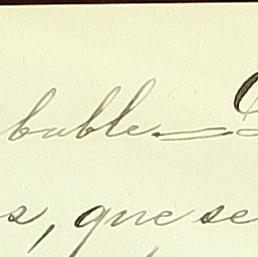 buble =
s, que se